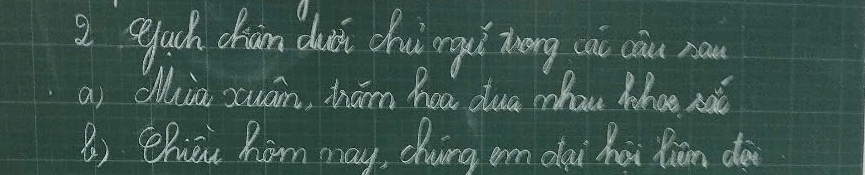 2 Gạch chân dưới chủ ngữ trong các câu sau
a) Mùa xuân, trăm hoa đua nhau khoe sắc
b) Chiều hôm nay, chúng em đại hội liên đội